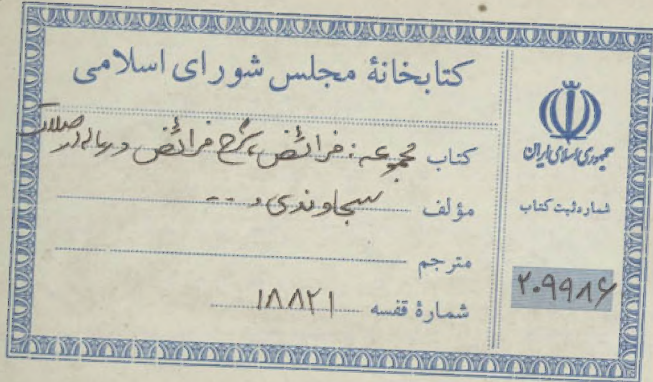 کتابخانهٔ مجلس شورای اسلامی
کتاب مجموعه: فرائض، شرح فرائض و رساله در
مؤلف سجاوندی و --
مترجم
شمارهٔ قفسه ۱۸۸۲۱
جمهوری اسلامی ایران
شماره ثبت کتاب
۲۰۹۹۸۶